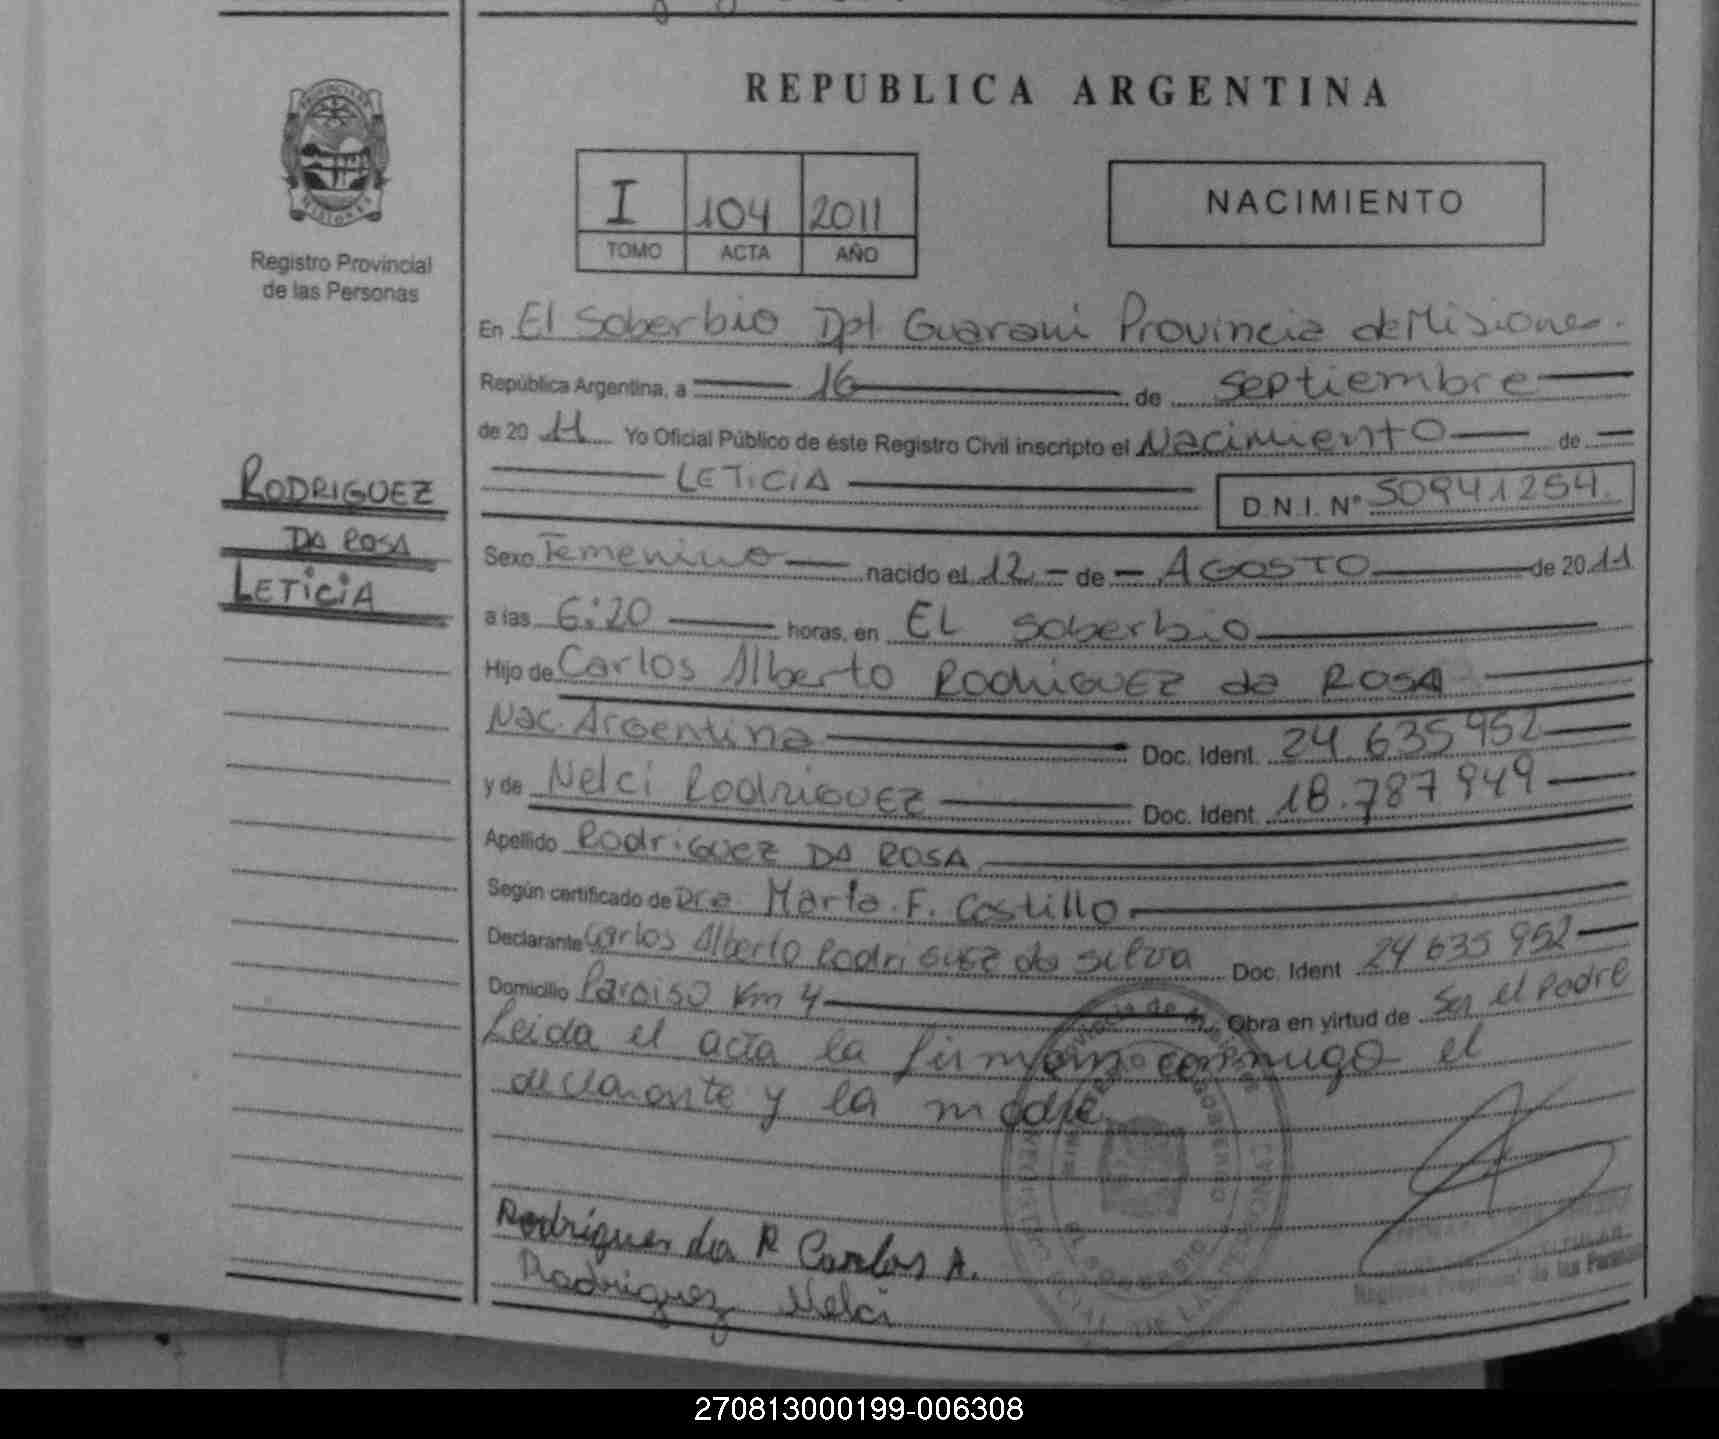 REPUBLICA ARGENTINA
I 104 2011
TOMO ACTA AÑO
NACIMIENTO
PROVINCIA DE
MISIONES
Registro Provincial
de las Personas
RODRIGUEZ
DA ROSA
LETICIA
En El Soberbio Dpt. Guarani Provincia de Misiones.
República Argentina, a 16 de septiembre
de 20 11 Yo Oficial Público de éste Registro Civil inscripto el Nacimiento de
LETICIA D.N.I. Nº 50941254.
Sexo Femenino nacido el 12 de AGOSTO de 20 11
a las 6:20 horas, en EL Soberbio
Hijo de Carlos Alberto RODRIGUEZ da ROSA
Nac. Argentina Doc. Ident. 24.635952
y de Nelci RodriGUEZ Doc. Ident. 18.787949
Apellido RodriGuez DA ROSA
Según certificado de Dra. Marta. F. Costillo
Declarante Carlos Alberto Rodriguez da silva Doc. Ident 24 635 952
Domicilio Paraiso Km 4 Obra en virtud de Ser el Padre
Leida el acta la firman conmigo el
declarante y la madre
Rodrigues da R Carlos A.
Rodriguez Nelci
Registro Provincial de las Personas
270813000199-006308